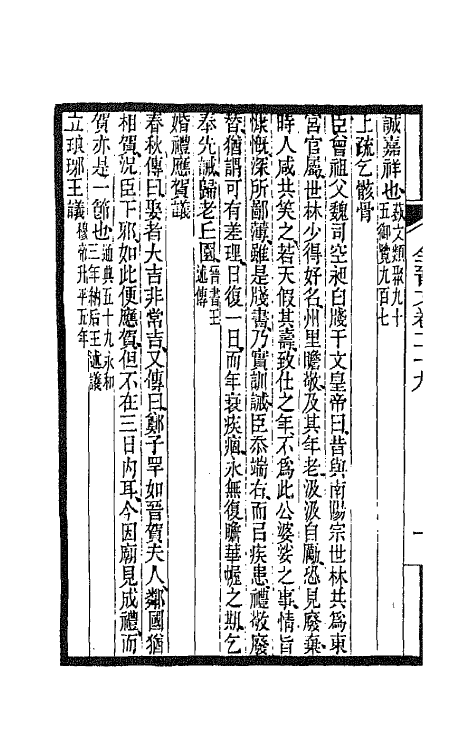 誠嘉祥也藝文類聚九十
五御覽九百七
上疏乞骸骨
臣曾祖父魏司空昶白牋于文皇帝曰昔與南陽宗世林共爲東
宮官屬世林少得好名州里瞻敬及其年老汲汲自勵恐見廢棄
時人咸共笑之若天假其壽致仕之年不爲此公婆娑之事情旨
慷慨深所鄙薄雖是牋書乃實訓誡臣忝端右而㠯疾患禮敬廢
替猶謂可有差理日復一日而年衰疾痼永無復瞻華幄之期乞
奉先誠歸老丘園晉書王
述傳
婚禮應賀議
春秋傳曰娶者大吉非常吉又傳曰鄭子罕如晉賀夫人鄰國猶
相賀況臣下邪如此便應賀但不在三日內耳今因廟見成禮而
賀亦是一節也通典五十九永和
三年納后王述議
立琅琊王議穆帝升平五年
全晉文卷二十九
一